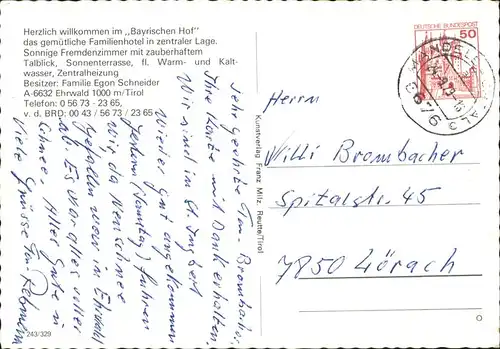 Herzlich willkommen im „Bayrischen Hof"
das gemütliche Familienhotel in zentraler Lage.
Sonnige Fremdenzimmer mit zauberhaftem
Talblick, Sonnenterrasse, fl. Warm- und Kalt-
wasser, Zentralheizung
Besitzer: Familie Egon Schneider
A-6632 Ehrwald 1000 m/Tirol
Telefon: 0 56 73 - 23 65,
v. d. BRD: 00 43 / 56 73 / 23 65
Sehr geehrter Brombacher
Ihre Karte mit Dank erhalten.
Wir sind in St. Ingbert
wieder gut angekommen
gestern (Samstag) fuhren
wir, da Neuschnee
gefallen war in Ehrwald
ab. Es war alles voller
Schnee. Alles Gute u.
viele Grüsse
243/329
Kunstverlag Franz Milz, Reutte/Tirol
DEUTSCHE BUNDESPOST
50
6676
Herrn
Willi Brombacher
Spitalstr. 45
7850 Lörach